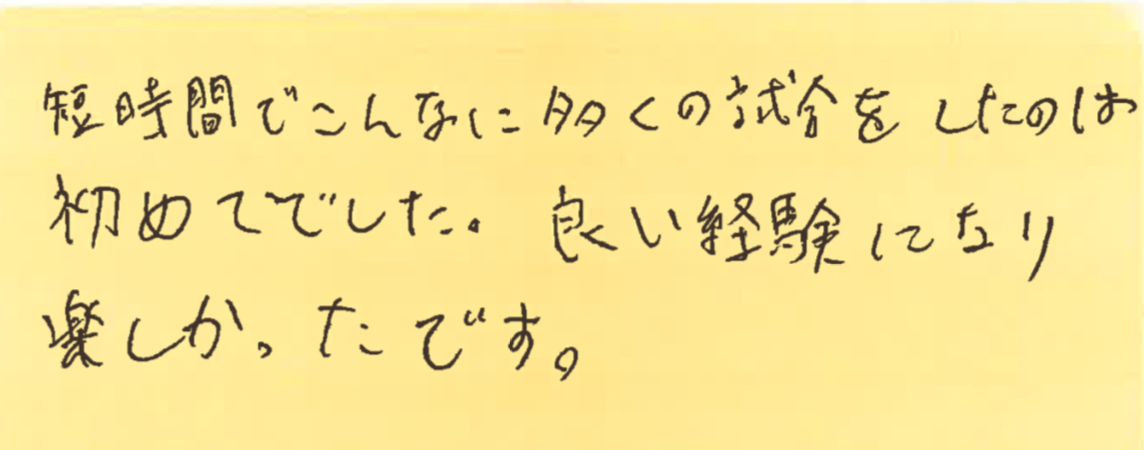 短時間でこんなに多くの試合をしたのは
初めてでした。良い経験になり
楽しかったです。